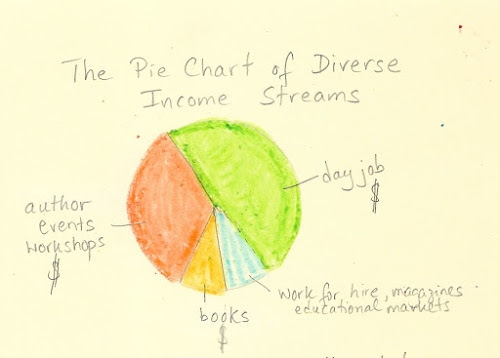 The Pie Chart of Diverse
Income Streams
day job
$
author
events
workshops
$
work for hire, magazines
educational markets
books
$